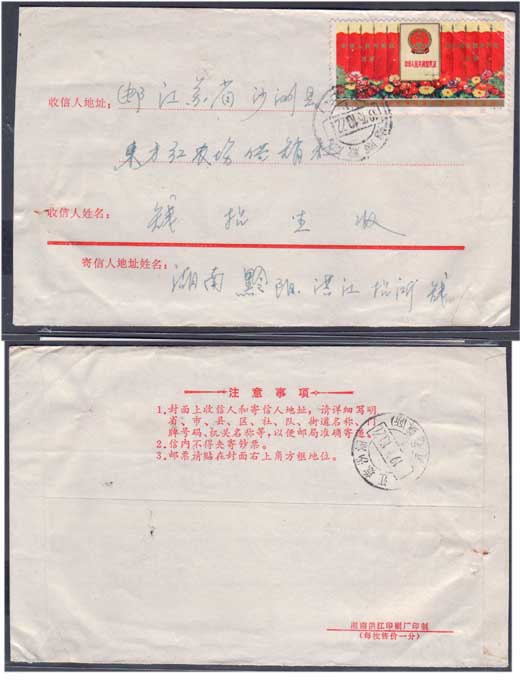 中华人民共和国宪法
收信人地址： (邮)江苏省沙洲县
东方红农场供销社
收信人姓名： 钱招生收
寄信人地址姓名：
湖南黔阳洪江 钱
注意事项
1.封面上收信人和寄信人地址，请详细写明
省、市、县、区、社、队、街道名称、门
牌号码、机关名称等，以便邮局准确寄递。
2.信内不得夹寄钞票。
3.邮票请贴在封面右上角方框地位。
湖南洪江印刷厂印制
(每枚售价一分)